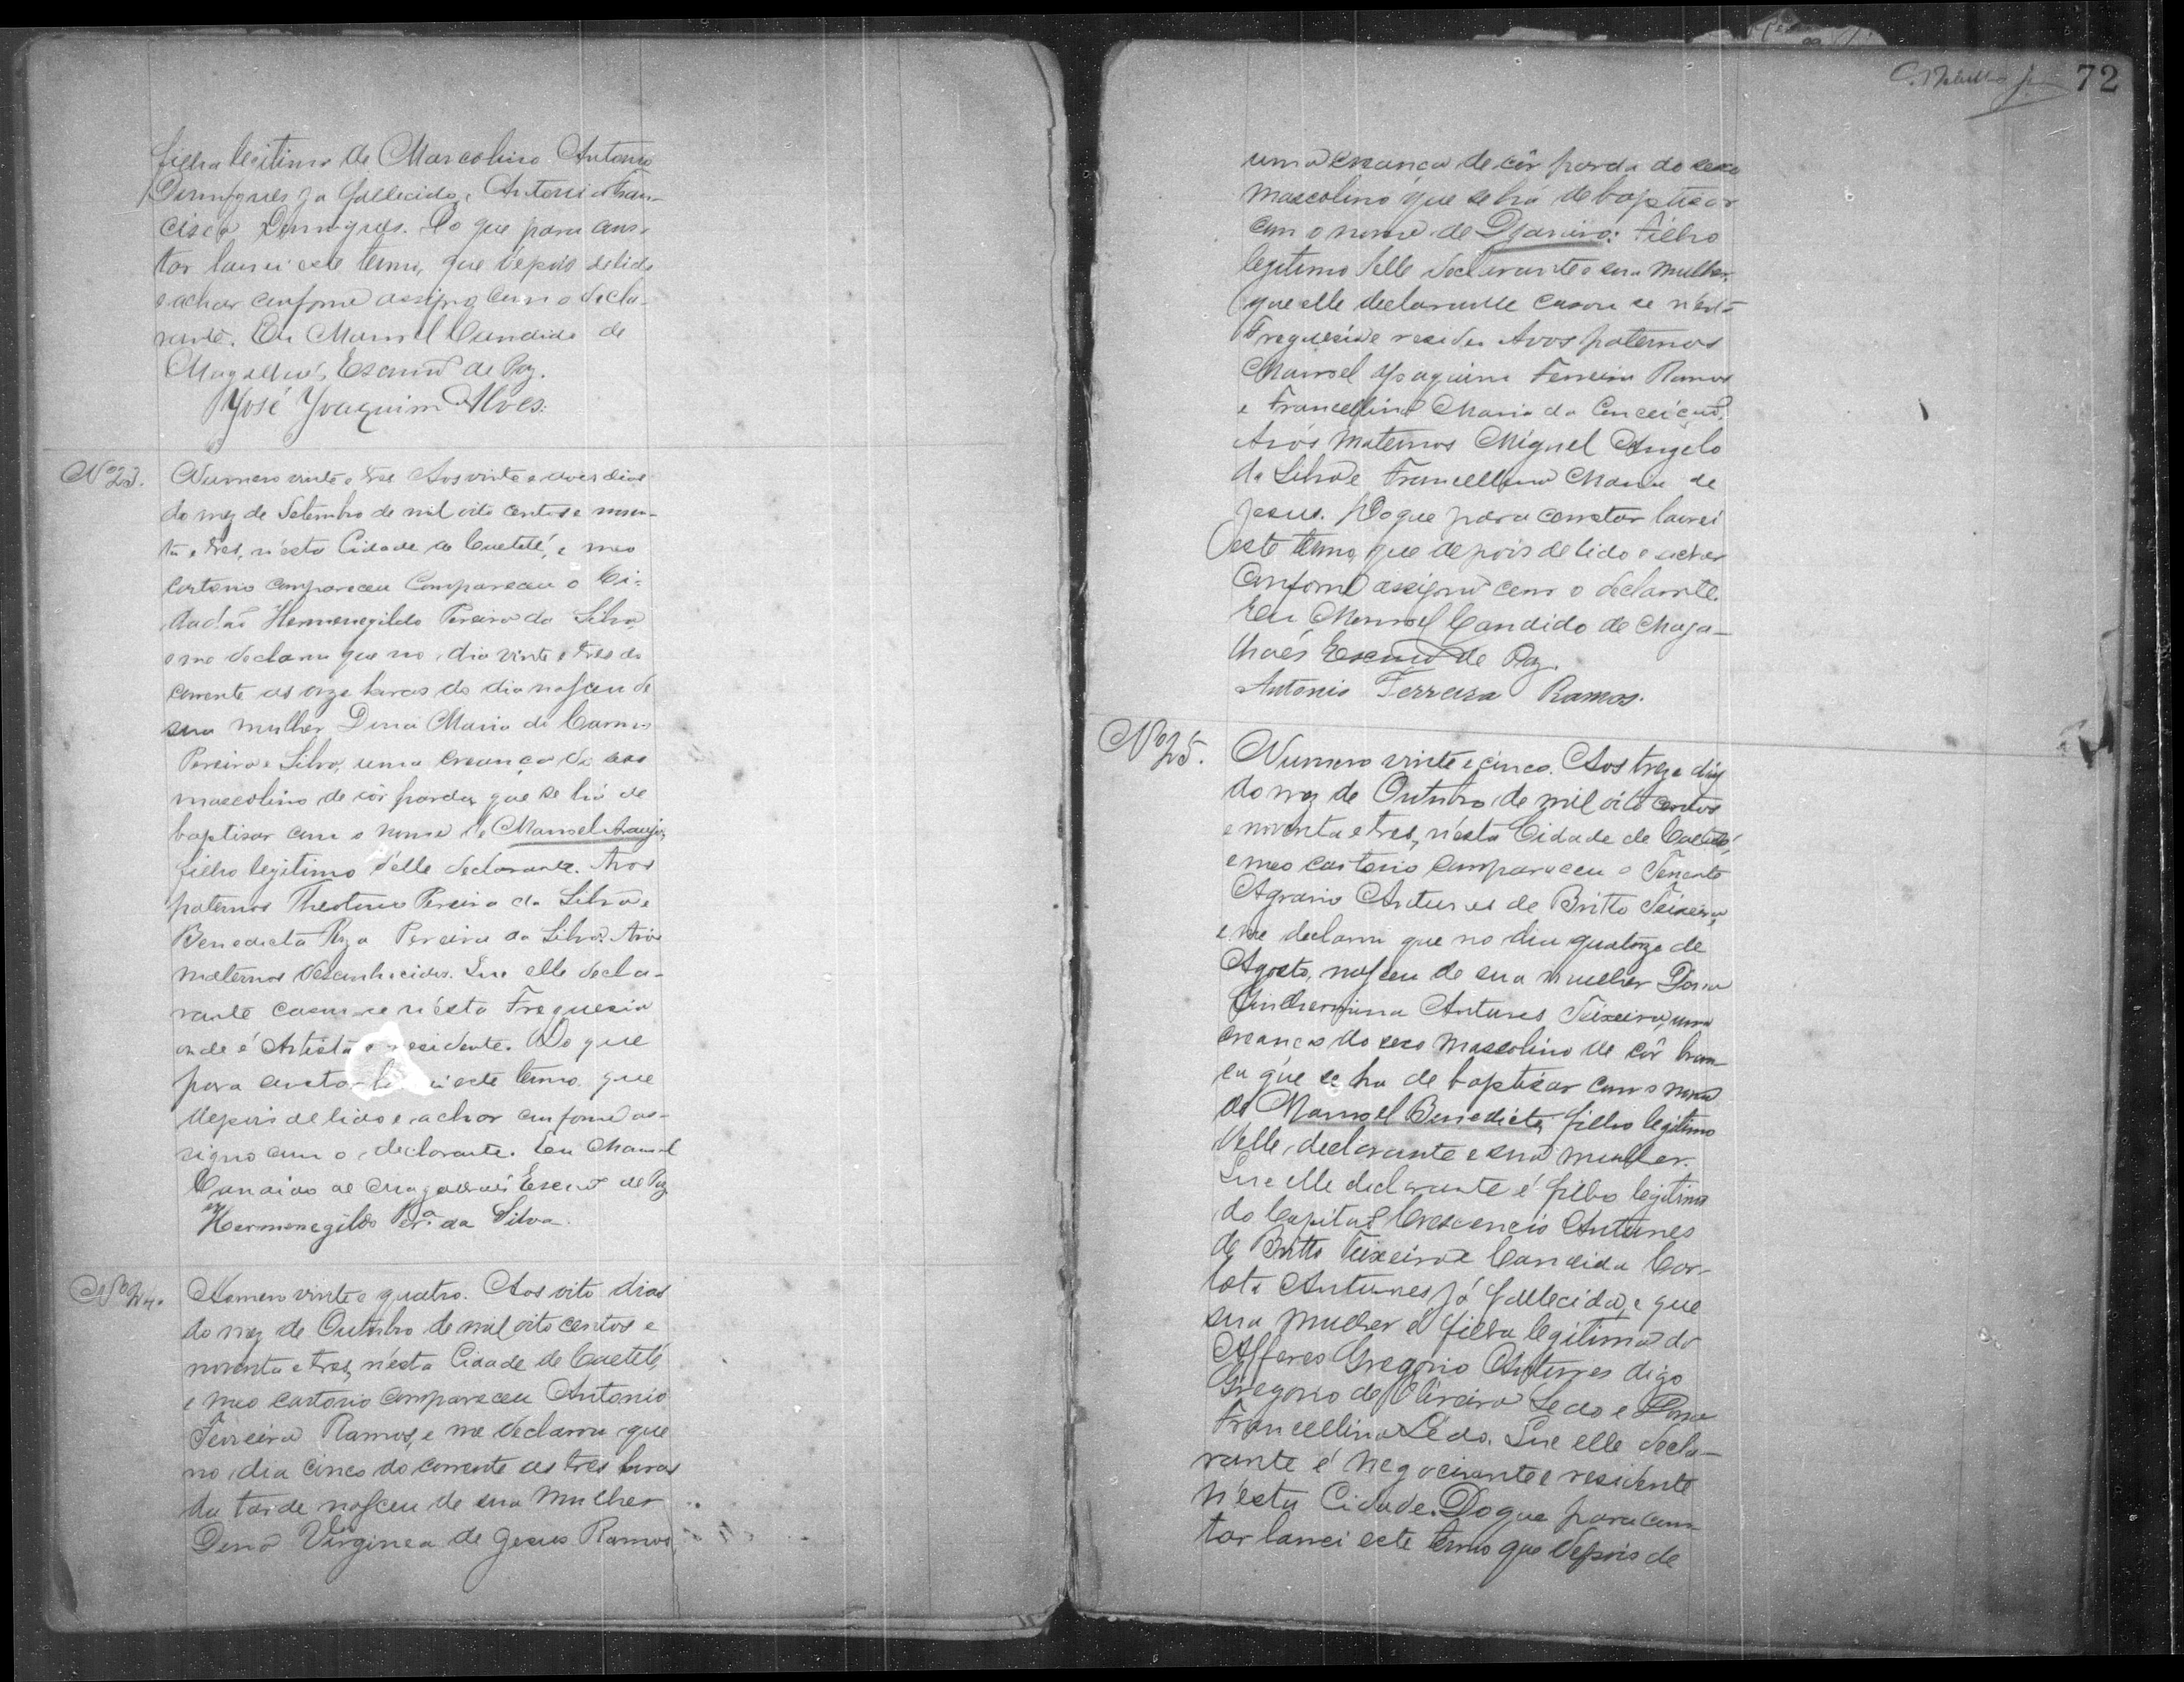 filha legitima de Marcolino Antonio
Domingues ja fallecido, e Antonia Fran-
cisca Domingues. Do que para cons-
tar lavrei este termo, que depois de lido
e achar conforme assigno com o decla-
rante. Eu Manoel Candido de
Magalhães Escrivão de Paz.
José Joaquim Alves.
Nº 23. Numero vinte e tres Aos vinte e dias
do mez de Setembro de mil oito centos e noven-
ta e tres, n'esta Cidade de Caetité, e meo
cartorio compareceu Compareceu o Ci-
dadão Hermenegildo Pereira da Silva,
e me declarou que no dia vinte e tres do
corrente as onze horas do dia nasceu de
sua mulher Dona Maria do Carmo
Pereira e Silva, uma creança do sexo
masculino de côr parda, que se há de
baptisar com o nome de Manoel Araujo,
filho legitimo d'elle declarante. Avos
paternos Theotonio Pereira da Silva e
Benedicta Pereira da Silva. Avós
maternos desconhecidos. Que elle decla-
rante casou-se n'esta Freguesia
onde é Artista e residente. Do que
para constar lavrei este termo que
depois de lido e achar conforme as-
signo com o declarante. Eu Manoel
Candido de Magalhães Escrivão de Paz
Hermenegildo Perª da Silva.
Nº 24. Numero vinte e quatro. Aos oito dias
do mez de Outubro de mil oito centos e
noventa e tres, n'esta Cidade de Caetité,
e meo cartorio compareceu Antonio
Ferreira Ramos, e me declarou que
no dia cinco do corrente as tres horas
da tarde nasceu de sua mulher
Dona Virginea de Jesus Ramos,
72
uma creança de côr parda do sexo
masculino que se há de baptisar
com o nome de : Filho
legitimo delle declarante e sua mulher,
que elle declarante casou se n'esta
Freguesia e reside. Avos paternos
Manoel Joaquim Ferreira Ramos
e Francellina Maria da Conceição,
Avós maternos Miguel Angelo
da Silva e Francellina Maria de
Jesus. Do que para constar lavrei
este termo, que depois de lido e achar
conforme assigno com o declarante.
Eu Manoel Candido de Maga-
lhães Escrivão de Paz.
Antonio Ferreira Ramos.
Nº 25. Numero vinte e cinco. Aos treze dias
do mez de Outubro de mil oito centos
e noventa e tres, n'esta Cidade de Caetité,
e meo cartorio compareceu o Tenente
Agrario Antunes de Britto Teixeira,
e me declarou que no dia quatorze de
Agosto, nasceu de sua mulher Dona
Guilhermina Antunes Teixeira, uma
creança do sexo masculino de côr bran-
ca que se ha de baptisar com o nome
de Manoel Benedicto, filho legitimo
delle declarante e sua mulher.
Que elle declarante é filho legitimo
do Capitão Crescencio Antunes
de Britto Teixeira e Candida Car-
lota Antunes já fallecida, e que
sua mulher é filha legitima do
Alferes Gregorio Antunes digo
Gregorio de Oliveira Ledo e Dona
Francellina Ledo. Que elle decla-
rante é negociante e residente
n'esta Cidade. Do que para cons-
tar lavrei este termo que depois de